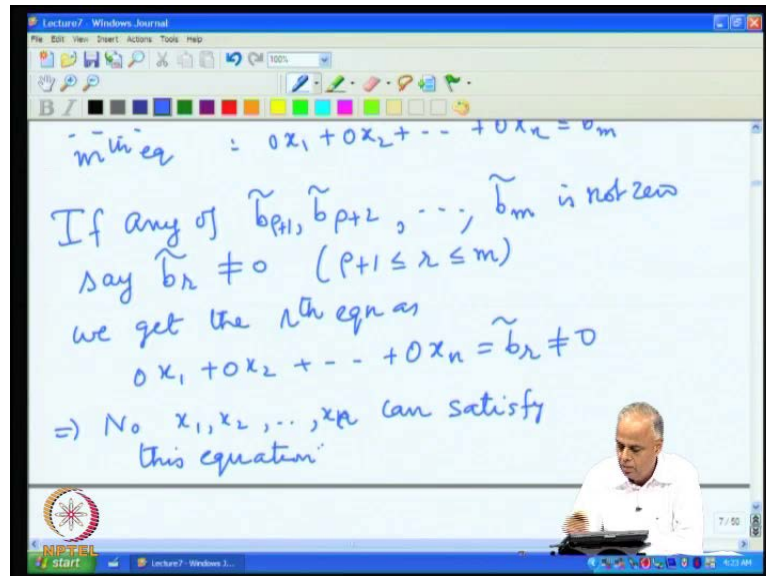 Lecture7 - Windows Journal
File Edit View Insert Actions Tools Help
100%
B I
m th eq : 0x₁ + 0x₂ + -- + 0xₙ = b̃ₘ
If any of b̃ρ+1, b̃ρ+2, ---, b̃ₘ is not zero
say b̃ᵣ ≠ 0 (ρ+1 ≤ r ≤ m)
we get the rth eqn as
0x₁ + 0x₂ + -- + 0xₙ = b̃ᵣ ≠ 0
⇒ No x₁, x₂, .., xₙ can satisfy
this equation
7/50
NPTEL
start Lecture7 - Windows J... 4:23 AM